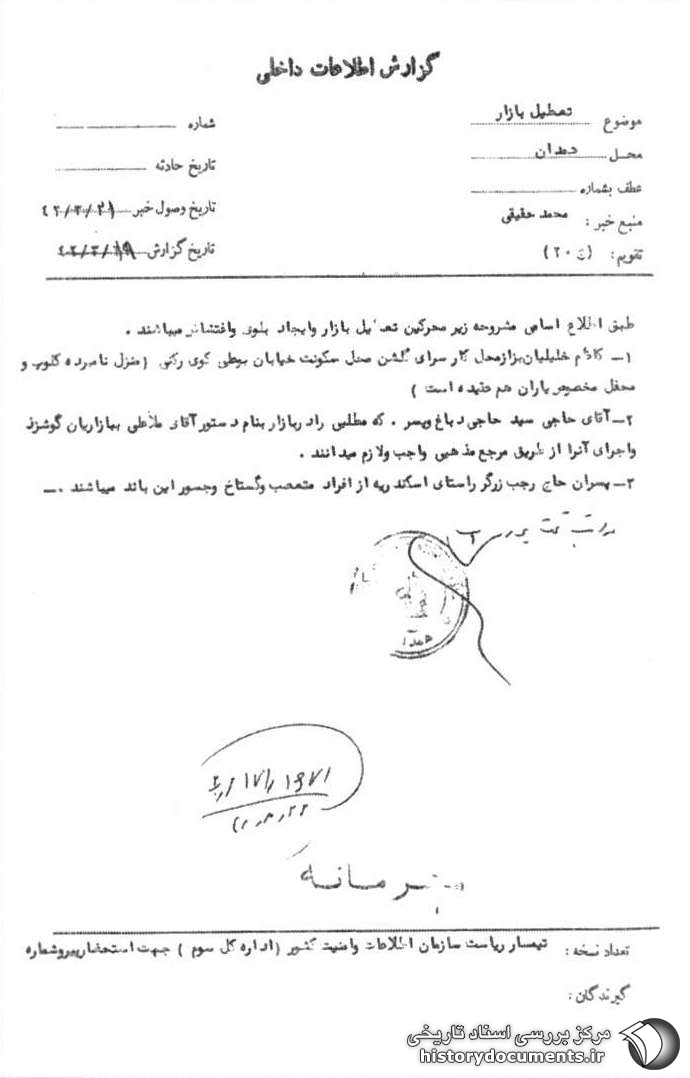 گزارش اطلاعات داخلی
موضوع تعطیل بازار
شماره
محل همدان
تاریخ حادثه
عطف بشماره
تاریخ وصول خبر ۴۲/۳/۲۱
منبع خبر : محمد حقیقی
تاریخ گزارش ۴۲/۳/۱۹
تقویم : (ج ۲۰)
طبق اطلاع اسامی مشروحه زیر محرکین تعطیل بازار وایجاد بلوی واغتشاش میباشند .
۱– کاظم خلیلیان بزاز محل کار سرای گلشن محل سکونت خیابان بوطی کوی رکنی (منزل نامبرده کلوپ و
محفل مخصوص یاران هم عقیده است )
۲–آقای حاجی سید حاجی دباغ وپسر . که مطلبی را دربازار بنام دستور آقای ملاعلی ببازاریان گوشزد
واجرای آنرا از طریق مرجع مذهبی واجب ولازم میدانند .
۳–پسران حاج رجب زرگر راستای اسکندریه از افراد متعصب وگستاخ وجسور این باند میباشند .–
همدان
محرمانه
تعداد نسخه : تیمسار ریاست سازمان اطلاعات وامنیت کشور (اداره کل سوم ) جهت استحضار پیرو شماره
گیرندگان :
مرکز بررسی اسناد تاریخی
historydocuments.ir